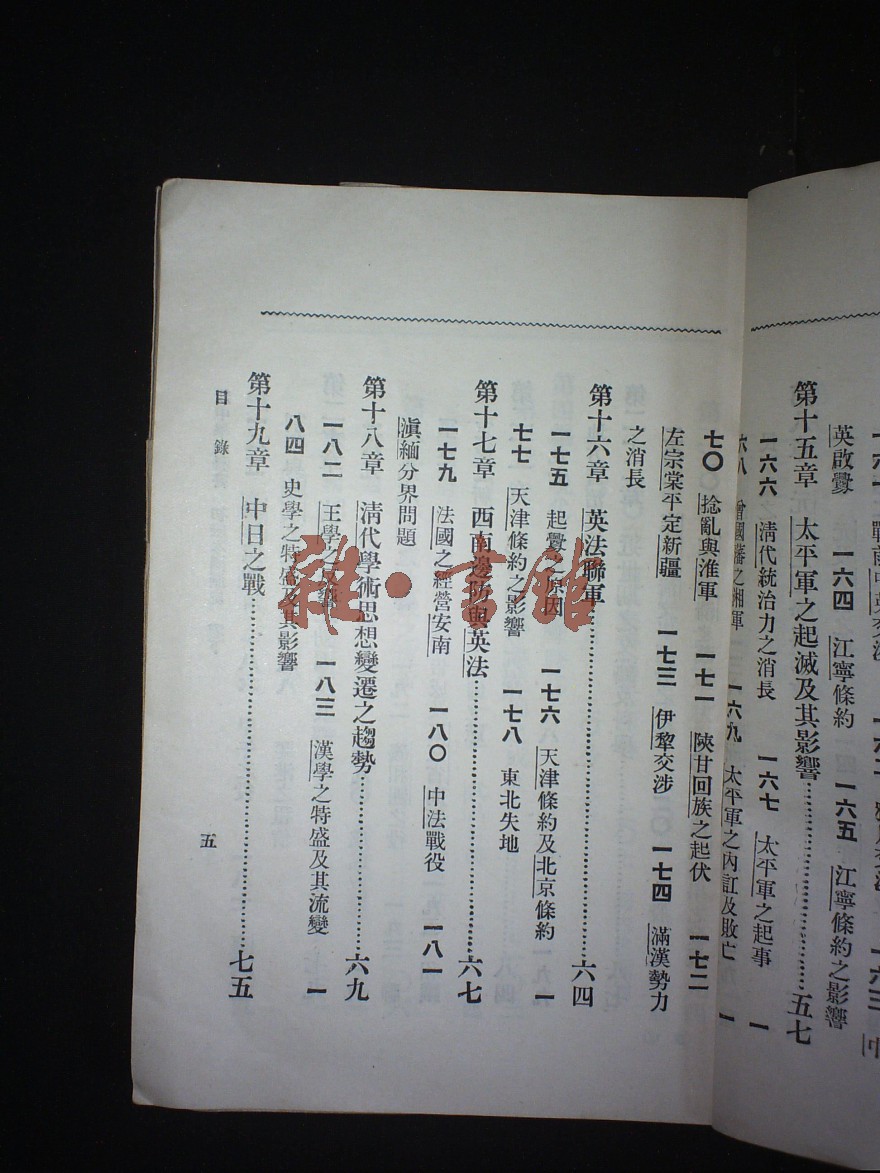 英啟釁　一六四　江寧條約　一六五　江寧條約之影響
第十五章　太平軍之起滅及其影響……五七
一六六　清代統治力之消長　一六七　太平軍之起事　一
六八　曾國藩之湘軍　一六九　太平軍之內訌及敗亡　一
七〇　捻亂與淮軍　一七一　陝甘回族之起伏　一七二
左宗棠平定新疆　一七三　伊犂交涉　一七四　滿漢勢力
之消長
第十六章　英法聯軍……六四
一七五　起釁之原因　一七六　天津條約及北京條約　一
七七　天津條約之影響　一七八　東北失地
第十七章　西南邊防與英法……六七
一七九　法國之經營安南　一八〇　中法戰役　一八一
滇緬分界問題
第十八章　清代學術思想變遷之趨勢……六九
一八二　王學之反響　一八三　漢學之特盛及其流變　一
八四　史學之特盛及其影響
第十九章　中日之戰……七五
目錄
五
雜·書館